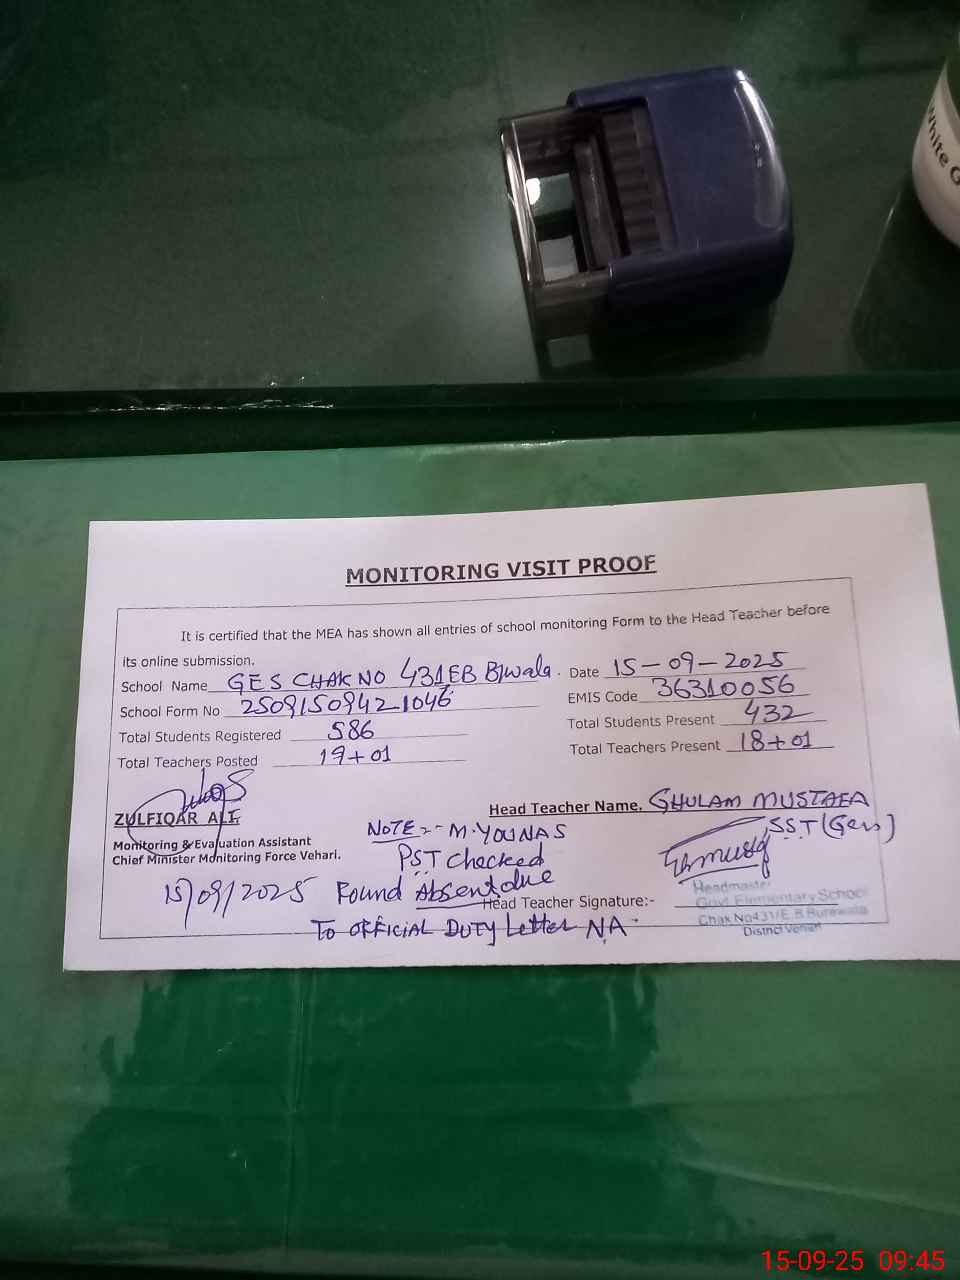 White G
MONITORING VISIT PROOF
It is certified that the MEA has shown all entries of school monitoring Form to the Head Teacher before
its online submission.
School Name GES CHAK NO 431EB B/wala. Date 15-09-2025
School Form No 25091509421046 EMIS Code 36310056
Total Students Registered 586 Total Students Present 432
Total Teachers Posted 19+01 Total Teachers Present 18+01
ZULFIQAR ALI,
Monitoring & Evaluation Assistant
Chief Minister Monitoring Force Vehari.
15/09/2025
Head Teacher Name. GHULAM MUSTAFA
SST (Gen)
NOTE:- M. YOUNAS
PST Checked
Found Absent due
To OFFICIAL DUTY Letter NA.
Head Teacher Signature:-
Headmaster
Govt. Elementary School
Chak No431/E.B Burewala
District Vehari
15-09-25 09:45